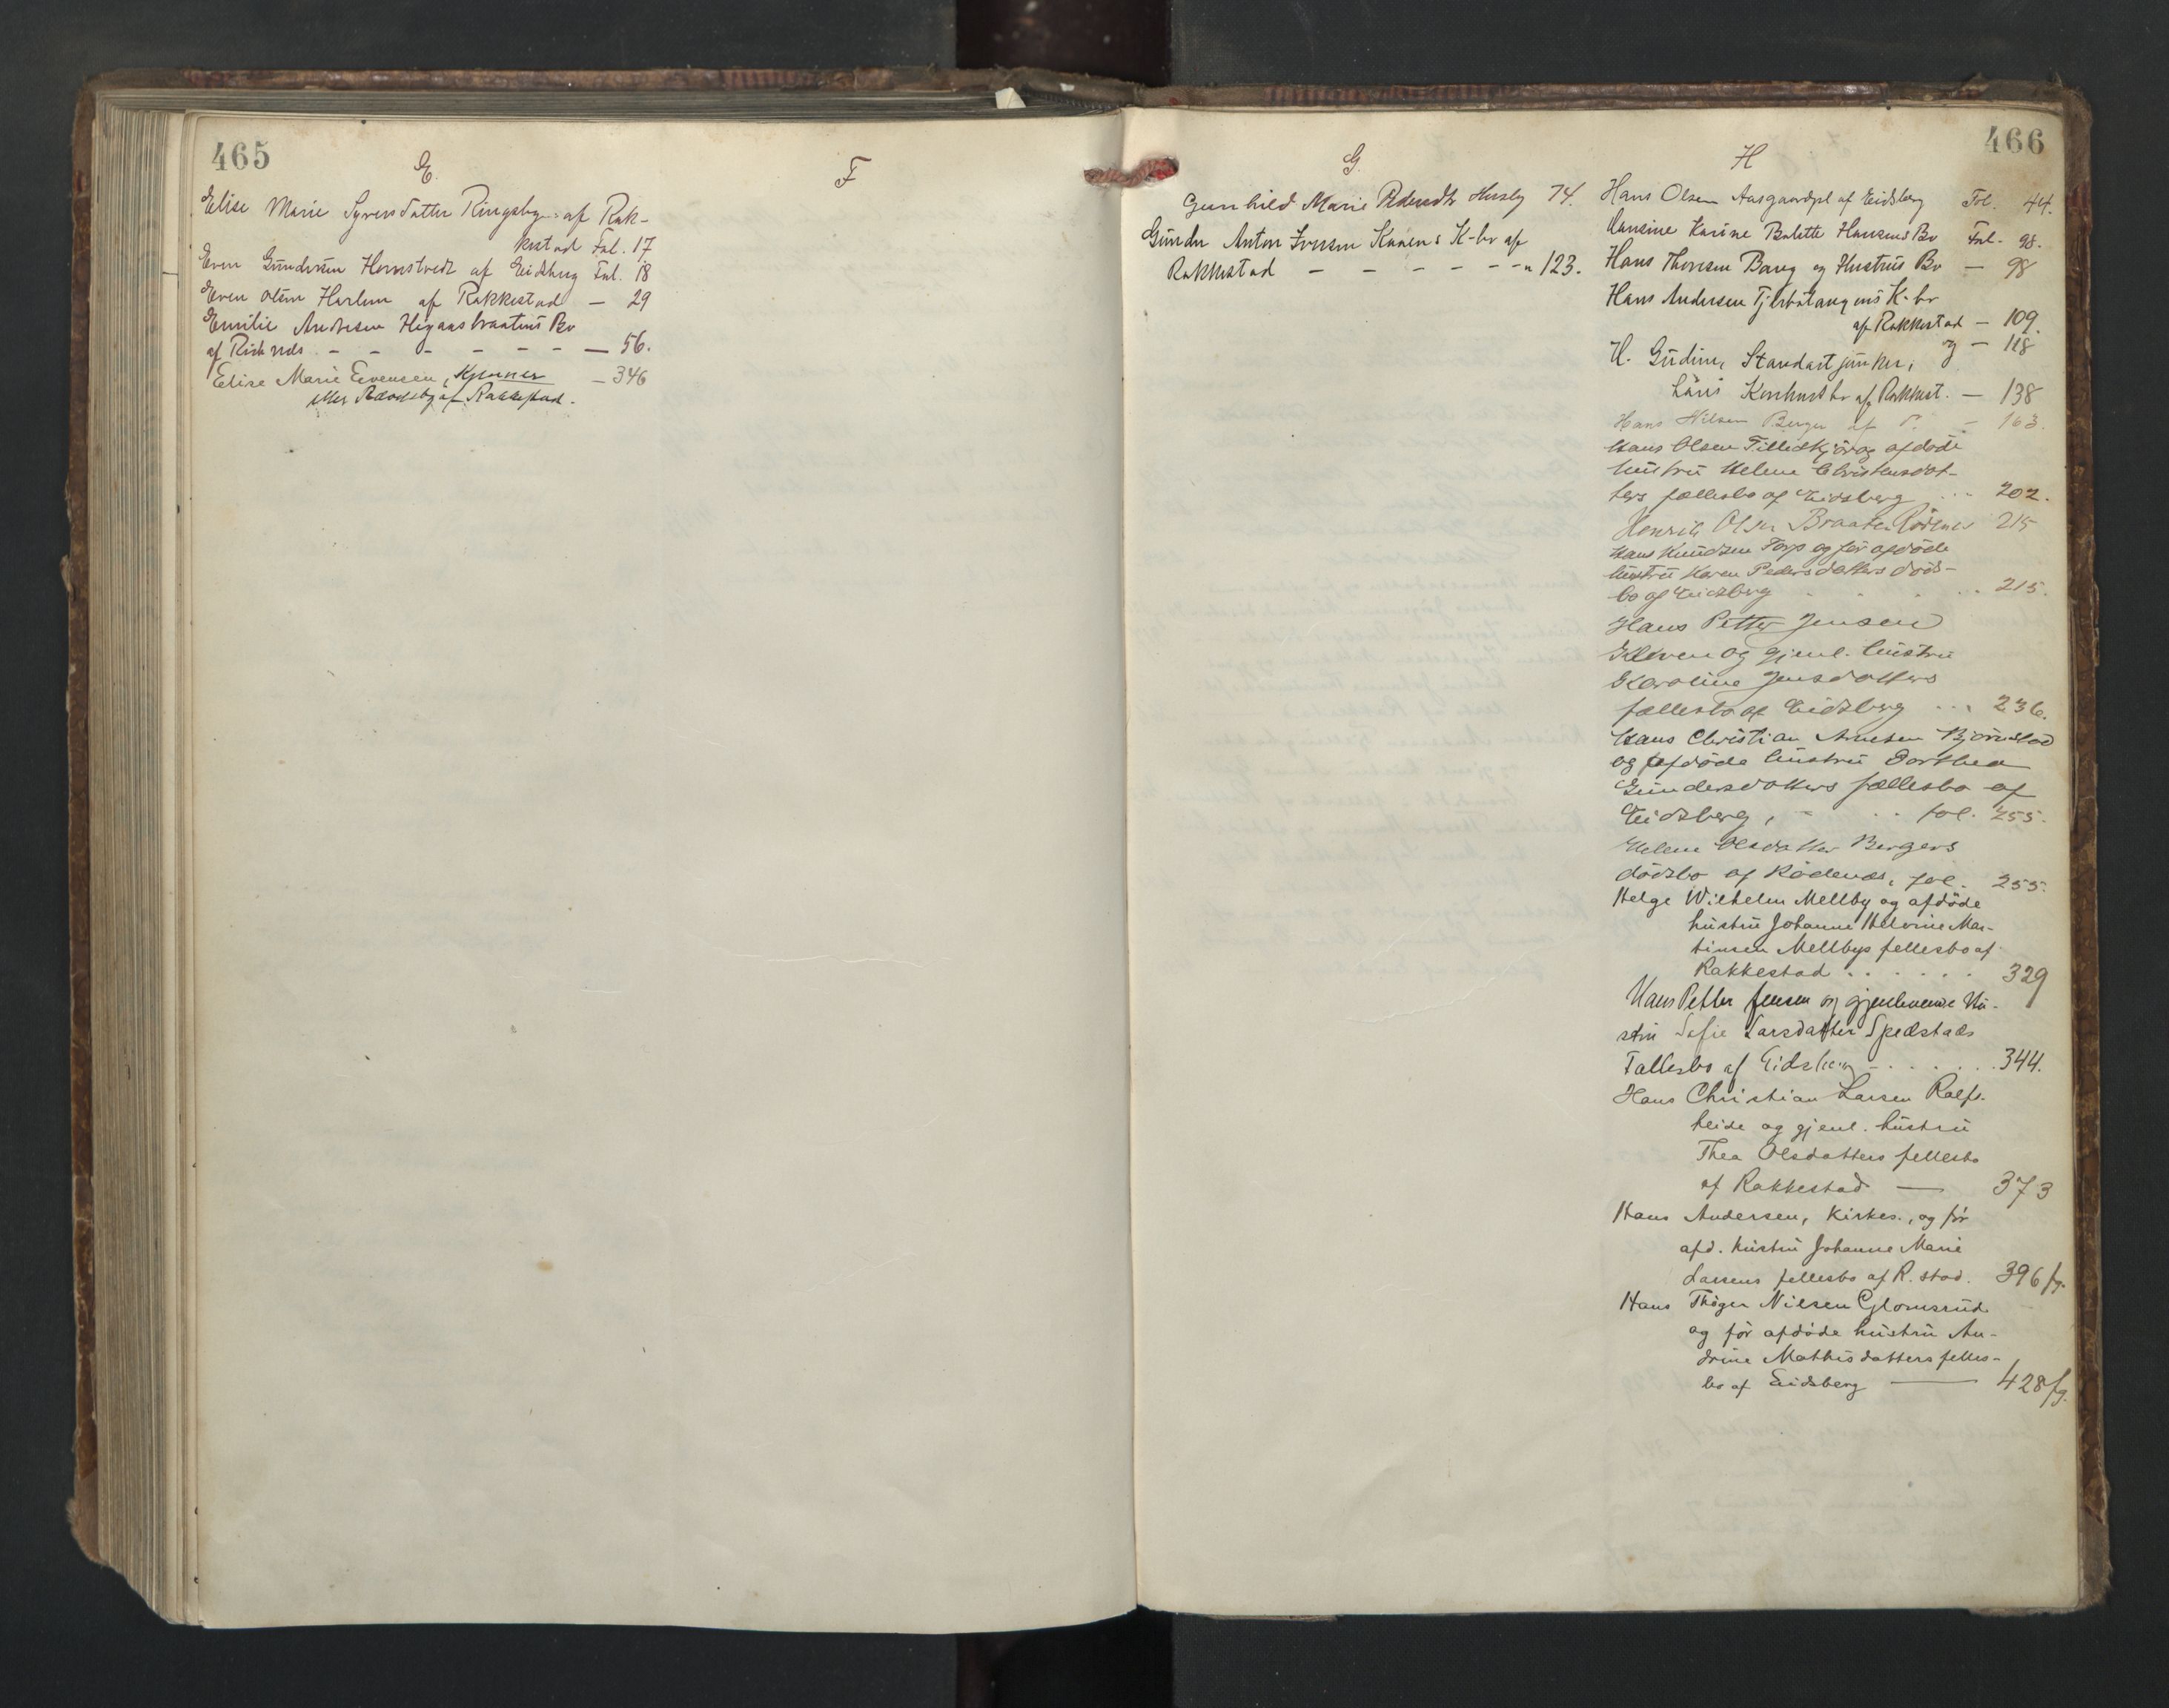 465
E.
Elise Marie Syversdatter Ringsby af Rak-
kestad Fol. 17
Even Gundersen Hornstvedt af Eidsberg Fol. 18
Even Olsen Harlem af Rakkestad — 29
Emilie Andresen Higaasbraatens Bo
af Rødenæs - - - - - - — 56.
Elise Marie Evensen, — 346
eller af Rakkestad.
F
G.
Gunhild Marie Pedersdtr Husby 74.
Gunder Anton Iversen Kaaens K-bo af
Rakkestad - - - - - - " 123.
466
H
Hans Olsen Aasgaardpl af Eidsberg Fol. 44.
Hansine Karine Bolette Hansens Bo Fol. 98.
Hans Thoresen Baug og Hustrus Bo — 98
Hans Andersen K-bo
af Rakkestad — 109.
og — 118
H. Gudim, Standartjunker,
Laus Konkursbo af Rakkest. — 138
Hans Nilsen Berger af R. - 163.
Hans Olsen og afdöde
hustru Helene Christensdat-
ters fællesbo af Eidsberg ... 202.
Henrik Olsen Braaten Rödenes 215
Hans Knudsen Torp og för afdöde
hustru Karen Pedersdatters döds-
bo af Eidsberg . . . . . 215.
Hans Petter Jensen
Kleven og gjenl. hustru
Karoline Jensdatters
fællesbo af Eidsberg ... 236.
Hans Christian Arnesen Bjørnstad
og afdöde hustru Dorthea
Gundersdatters fællesbo af
Eidsberg, - . . fol. 255.
Helene Olsdatter Bergers
dödsbo af Rödenæs, fol. 255.
Helge Wilhelm Mellby og afdöde
hustru Johanne Helvine Mar-
tinsen Mellbys fellesbo af
Rakkestad . . . . . . 329
Hans Petter Jensen og gjenlevende Hu-
stru Sofie Larsdatter Spædstads
Fællesbo af Eidsberg - . . . . . 344.
Hans Christian Larsen Ralfs-
heide og gjenl. hustru
Thea Olsdatters fellesbo
af Rakkestad — 373
Hans Andersen, Kirkes., og för
afd. hustru Johanne Marie
Larsens fellesbo af R.stad. 396 fg.
Hans Thöger Nilsen Glomsrud
og för afdöde hustru An-
drine Mathisdatters felles-
bo af Eidsberg — 428 fg.